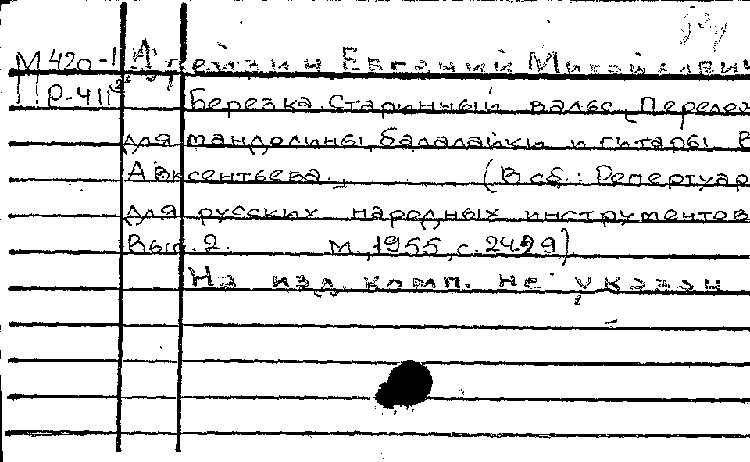 М 420-1 Дрейзин Евгений Михайлович
Р-411 Березка. Старинный вальс. Перелож
для мандолины, балалайки и гитары В
Авксентьева. (В сб.: Репертуар
для русских народных инструментов
Вып. 2. М., 1955, с. 24-29)
На изд. комп. не указан